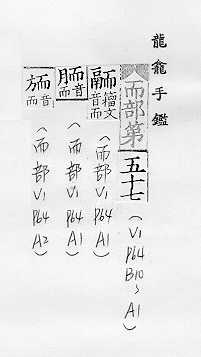 龍龕手鑑
而部第五十七(V1 P64 B10~A1)
籀文音而(而部 V1 P64 A1)
胹音而(而部 V1 P64 A1)
音而(而部 V1 P64 A2)